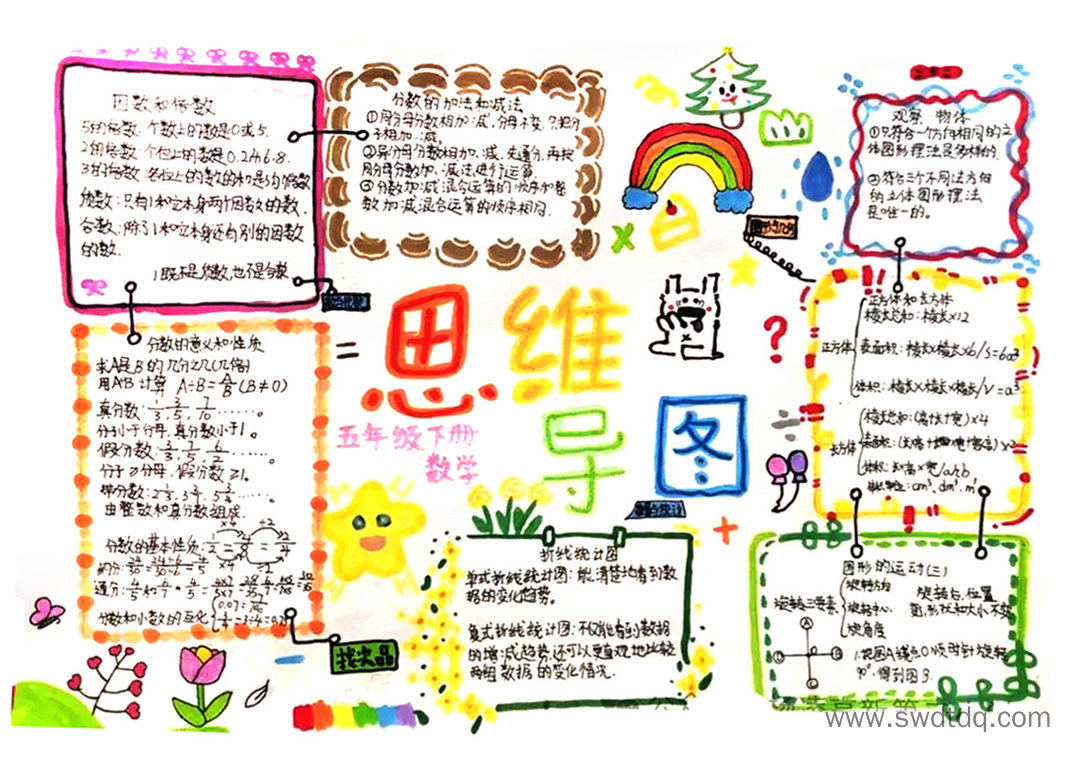 因数和倍数
5的倍数:个数上的数是0或5.
2的倍数:个位上的数是0.2.4.6.8.
3的倍数:各位上的数的和是3的倍数
质数:只有1和它本身两个因数的数.
合数:除了1和它本身还有别的因数
的数.
1既不是质数,也不是合数
分数的加法和减法
①同分母分数相加、减,分母不变,只把分
子相加、减。
②异分母分数相加、减,先通分,再按
同分母分数加、减法进行运算。
③分数加、减混合运算的顺序和整
数加减混合运算的顺序相同.
观察 物体
①只符合一个方向相同的立
体图形摆法是多样的.
②符合三个不同法方向
的立体图形摆法
是唯一的。
图形与几何
思维
导
图
五年级下册
数学
分数的意义和性质
求A是B的几分之几(几倍)
用A÷B 计算 A÷B=A/B(B≠0)
真分数:
分子小于分母,真分数小于1。
假分数:
分子≥分母,假分数≥1.
带分数:
由整数和真分数组成.
分数的基本性质:
约分:
通分:
分数和小数的互化
找次品
正方体
正方体和长方体
棱长总和:棱长×12
表面积:棱长×棱长×6/S=6a²
体积:棱长×棱长×棱长/V=a³
长方体
棱长总和:(高+长+宽)×4
体积:长×高×宽/
cm³、dm³、m³
折线统计图
单式折线统计图:能清楚地看到数
据的变化趋势。
复式折线统计图:不仅能看到数据
的增减趋势,还可以更直观地比较
两组数据的变化情况.
图形的运动(三)
旋转三要素
旋转方向
旋转中心
旋角度
旋转后,位置
图形状和大小不变
A
1.把图A绕点O顺时针旋转
90°,得到图B.
www.swdtdq.com